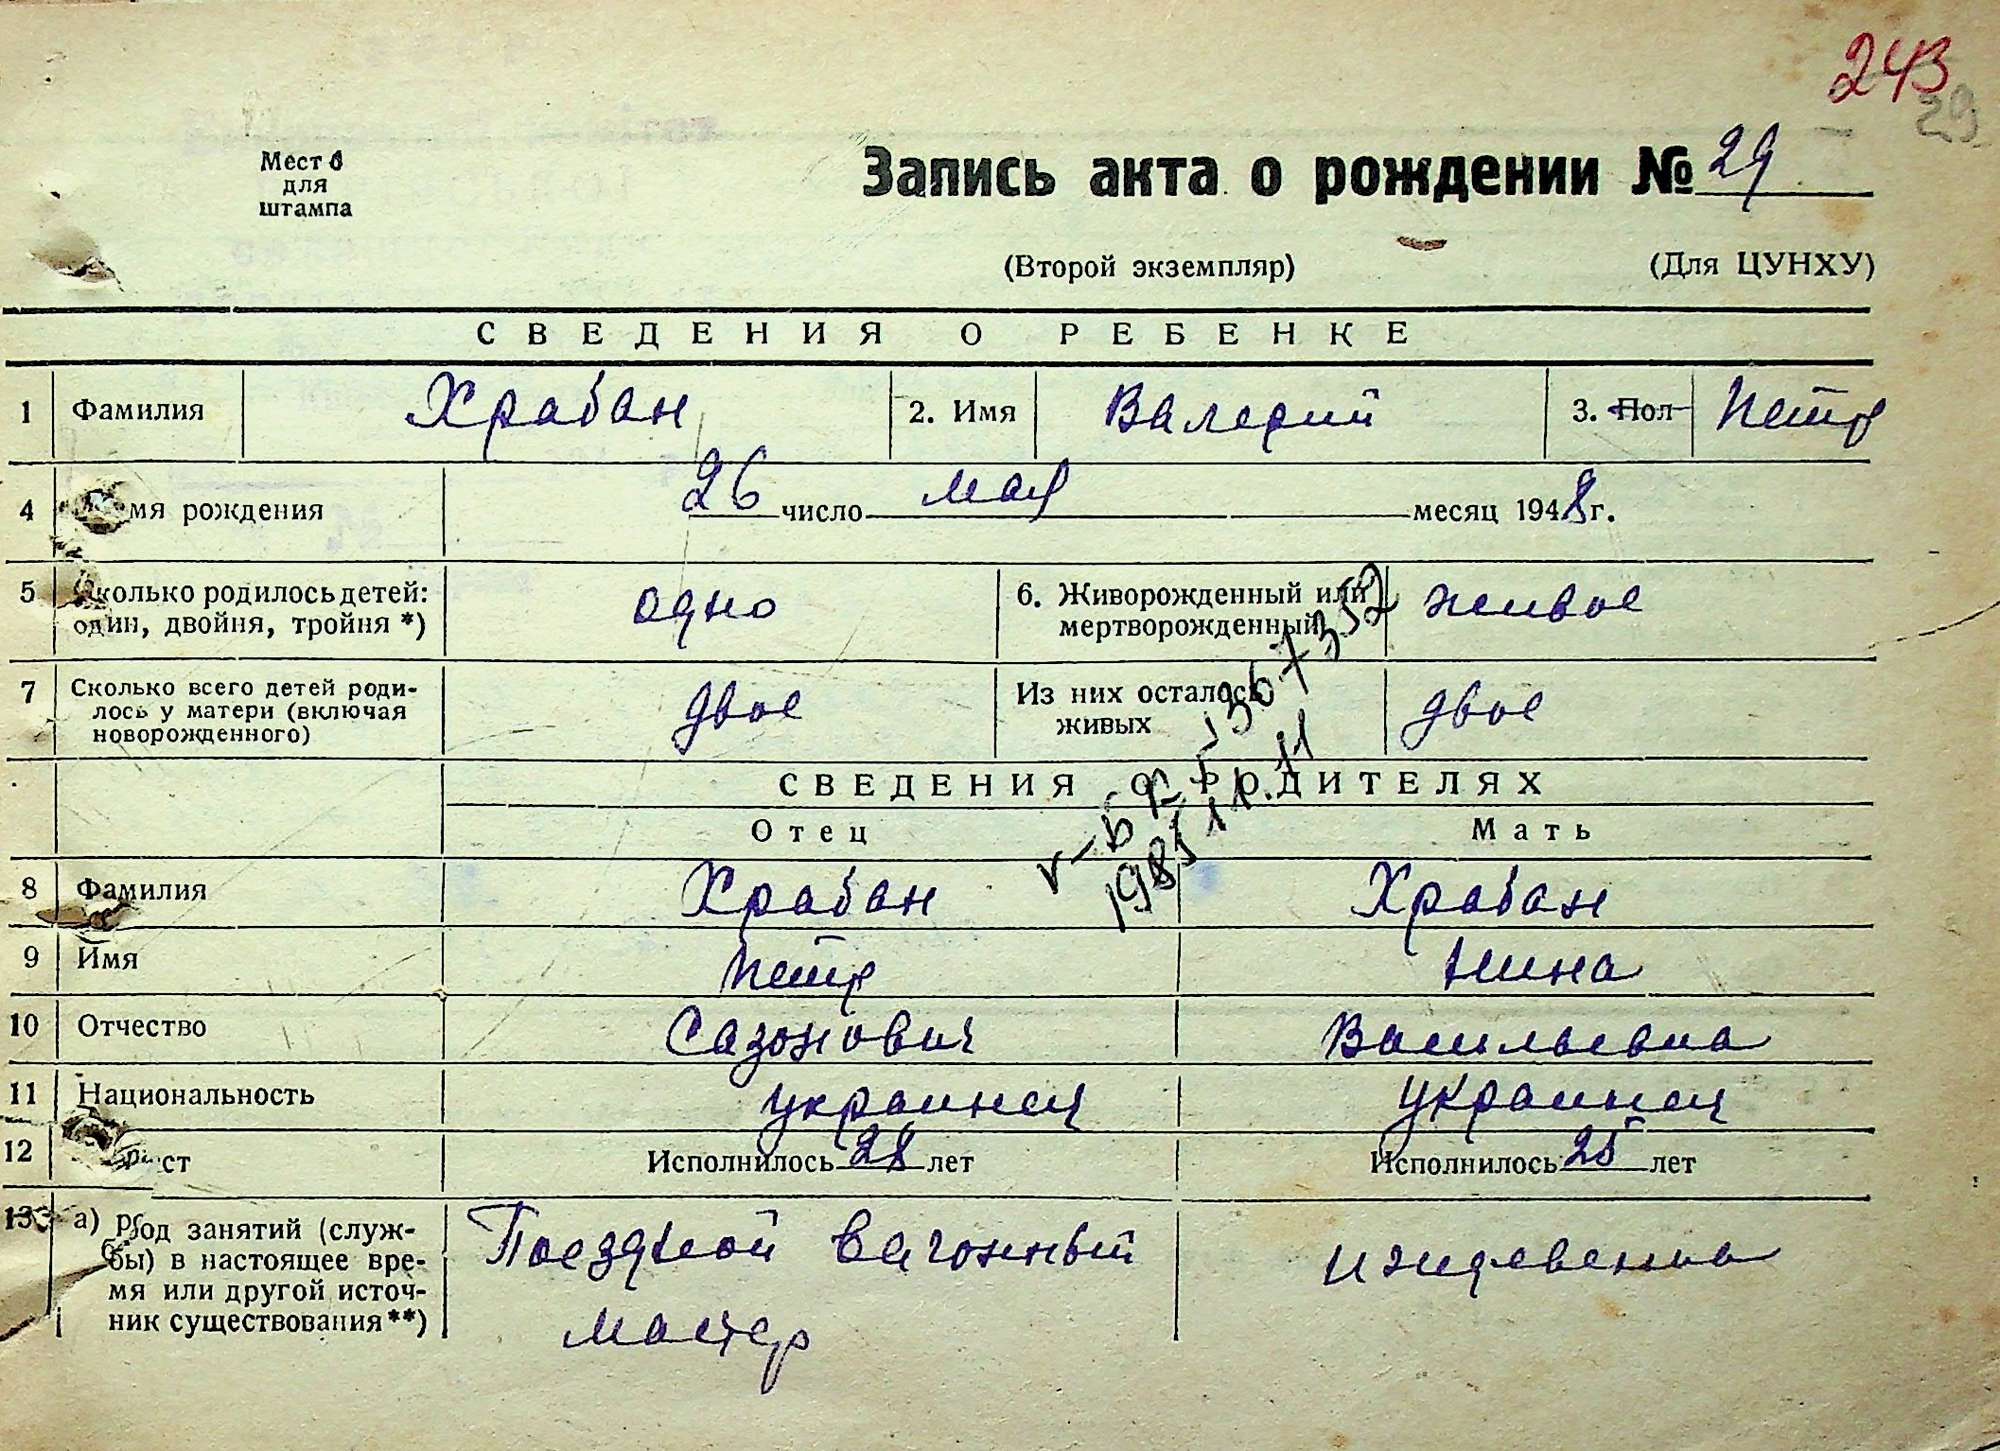 243
29
Место
для
штампа
Запись акта о рождении № 29
(Второй экземпляр) (Для ЦУНХУ)
СВЕДЕНИЯ О РЕБЕНКЕ
1 Фамилия Храбан 2. Имя Валерий 3. Пол Петр
4 мя рождения 26 число мая месяц 1948 г.
5 колько родилось детей: один, двойня, тройня *) одно 6. Живорожденный или мертворожденный живое
7 Сколько всего детей родилось у матери (включая новорожденного) двое Из них осталось живых двое
СВЕДЕНИЯ О РОДИТЕЛЯХ
Отец Мать
8 Фамилия Храбан Храбан
9 Имя Петр Нина
10 Отчество Сазонович Васильевна
11 Национальность украинец украинец
12 Исполнилось 28 лет Исполнилось 25 лет
13 а) Род занятий (служ-
бы) в настоящее вре-
мя или другой источ-
ник существования**)
Поездной вагонный
мастер
иждевенка
1367352
1985 11.11